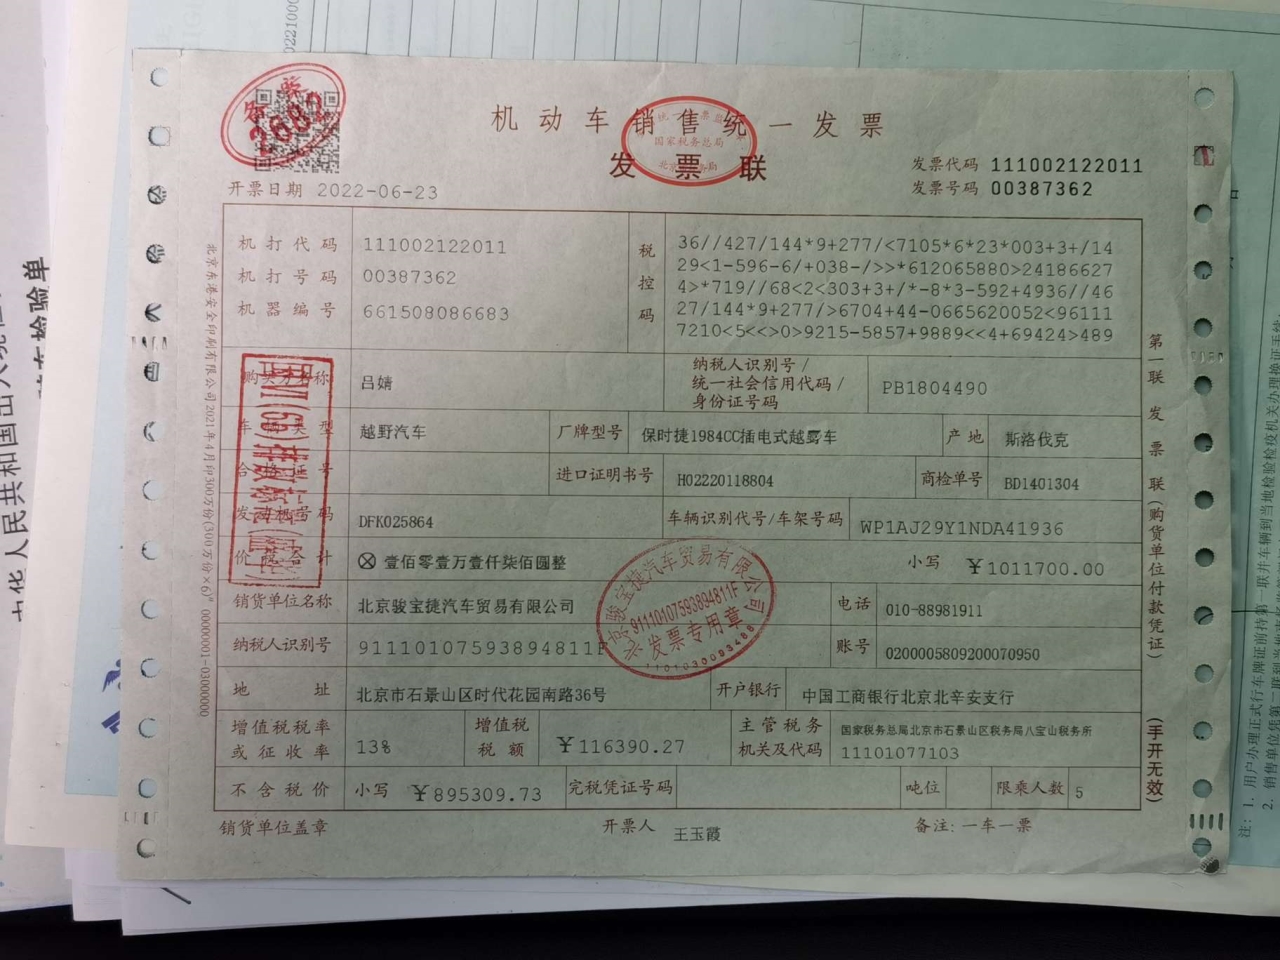 机动车销售统一发票
发票联
发票代码 111002122011
发票号码 00387362
开票日期 2022-06-23
机打代码 111002122011
机打号码 00387362
机器编号 661508086683
税控码
36//427/144*9+277/<7105*6*23*003+3+/14
29<1-596-6/+038-/>>*612065880>24186627
4>*719//68<2<303+3+/*-8*3-592+4936//46
27/144*9+277/>6704+44-0665620052<96111
7210<5<<>0>9215-5857+9889<<4+69424>489
购买方名称 吕婧 纳税人识别号/统一社会信用代码/身份证号码 PB1804490
车辆类型 越野汽车 厂牌型号 保时捷1984CC插电式越野车 产地 斯洛伐克
合格证号 进口证明书号 H02220118804 商检单号 BD1401304
发动机号码 DFK025864 车辆识别代号/车架号码 WP1AJ29Y1NDA41936
价税合计 ⊗壹佰零壹万壹仟柒佰圆整 小写 ￥1011700.00
销货单位名称 北京骏宝捷汽车贸易有限公司 电话 010-88981911
纳税人识别号 91110107593894811F 账号 0200005809200070950
地址 北京市石景山区时代花园南路36号 开户银行 中国工商银行北京北辛安支行
增值税税率或征收率 13% 增值税税额 ￥116390.27 主管税务机关及代码 国家税务总局北京市石景山区税务局八宝山税务所 11101077103
不含税价 小写 ￥895309.73 完税凭证号码 吨位 限乘人数 5
销货单位盖章 开票人 王玉霞 备注：一车一票
第一联 发票联（购货单位付款凭证）
（手开无效）
北京东港安全印刷有限公司2021年4月印300万份(300万份×6) 00000001-03000000
国家税务总局
2682
北京骏宝捷汽车贸易有限公司
91110107593894811F
发票专用章